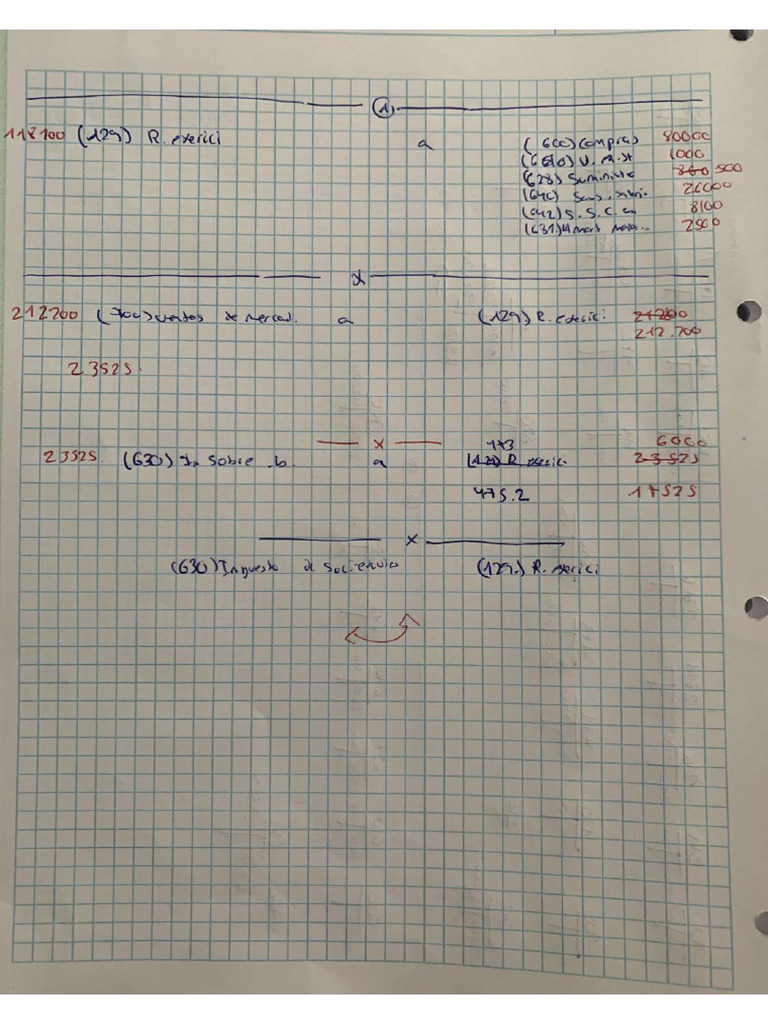 1
118100 (129) R. exerici a (600) Compras 80000
(610) V. exist 1000
(628) Suminist 500
(640) 26000
(642) S. S. C. em 8100
(631) 2500
x
212700 (700) ventas de mercad. a (129) R. exerici 21200
212.700
23525.
x 473 6000
23525. (630) Im sobre .b. a (129) R. exerici 23525
475.2 17525
x
(630) Impuesto de Sociedades (129.) R. exerici